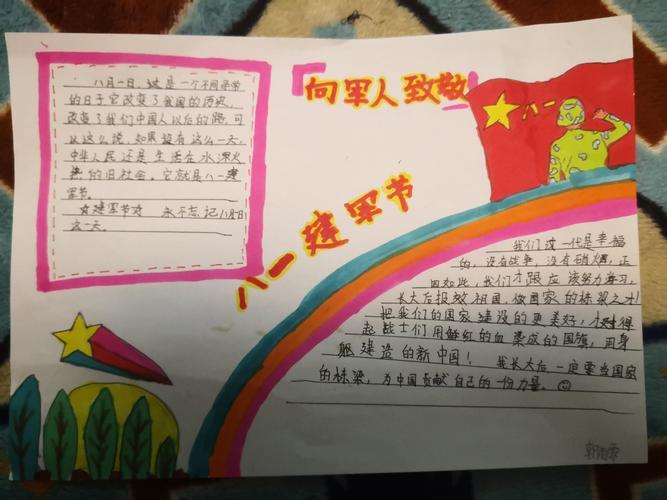 向军人致敬
八一
八一建军节
八月一日,这是一个不同寻常
的日子,它改变了我国的历史,
改变了我们中国人以后的路,可
以这么说,如果没有这么一天,
中华人民还是生活在水深火
热的旧社会。它就是八一建
军节。
☆建军节☆ 永不忘记八月一日
这一天。
我们这一代是幸福
的,没有战争,没有硝烟,正
因如此,我们才跟应该努力学习,
长大后报效祖国,做国家的栋梁之才!
把我们的国家建设的更美好,才对得
起战士们用鲜红的血染成的国旗,用身
躯建造的新中国! 我长大后一定要当国家
的栋梁,为中国贡献自己的一份力量。☺